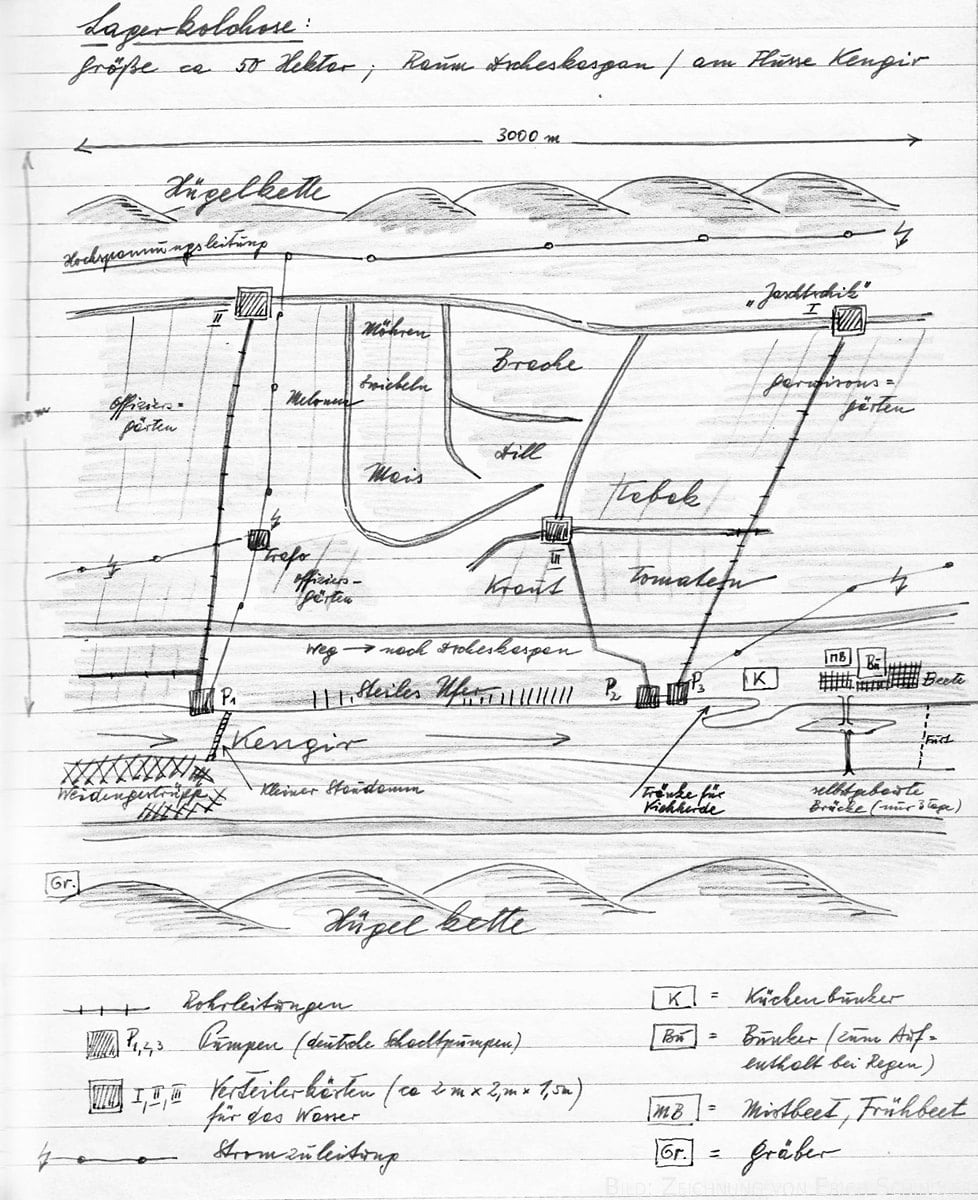 Lagerkolchose:
Größe ca 50 Hektar; Raum Dscheskasgan / am Flusse Kengir
3000 m
Hügelkette
Hochspannungsleitung
II
"Jaschtschik"
I
Möhren
Zwiebeln
Mais
Melonen
Brache
Dill
Offiziers=
gärten
Garnisons=
gärten
Tabak
III
Trafo
Offiziers-
gärten
Kraut
Tomaten
Weg → nach Dscheskasgan
P1
Steiles Ufer
P2
P3
K
MB
Bu
Beete
Kengir
Furt
Weidengestrüpp
Kleiner Staudamm
Tränke für
Viehherde
selbstgebaute
Brücke (nur 3 Tage)
Gr.
Hügelkette
Rohrleitungen
P1,2,3 Pumpen (deutsche Schachtpumpen)
I, II, III Verteilerkästen (ca 2 m x 2 m x 1,5 m)
für das Wasser
Stromzuleitung
K = Küchenbunker
Bu = Bunker (zum Auf=
enthalt bei Regen)
MB = Mistbeet, Frühbeet
Gr. = Gräber